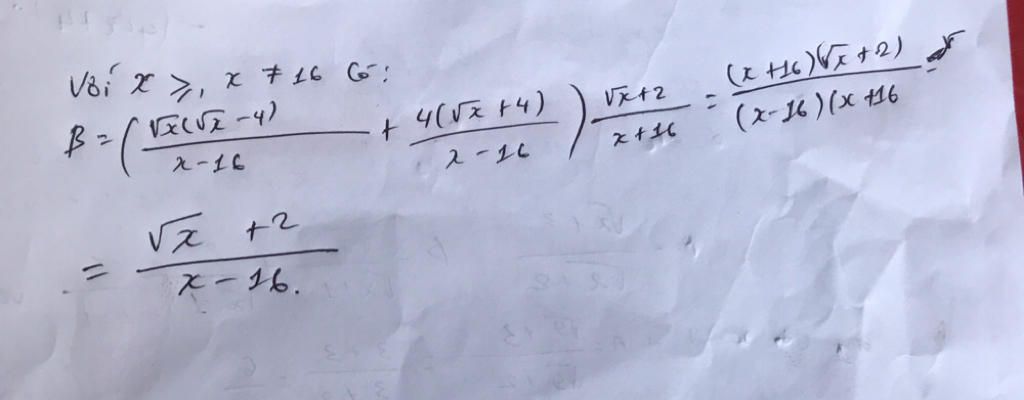 Với x ⩾, x ≠ 16 Có:
B = ( √x(√x - 4) / x - 16 + 4(√x + 4) / x - 16 ) √x + 2 / x + 16 = (x + 16)(√x + 2) / (x - 16)(x + 16 =
= √x + 2 / x - 16.